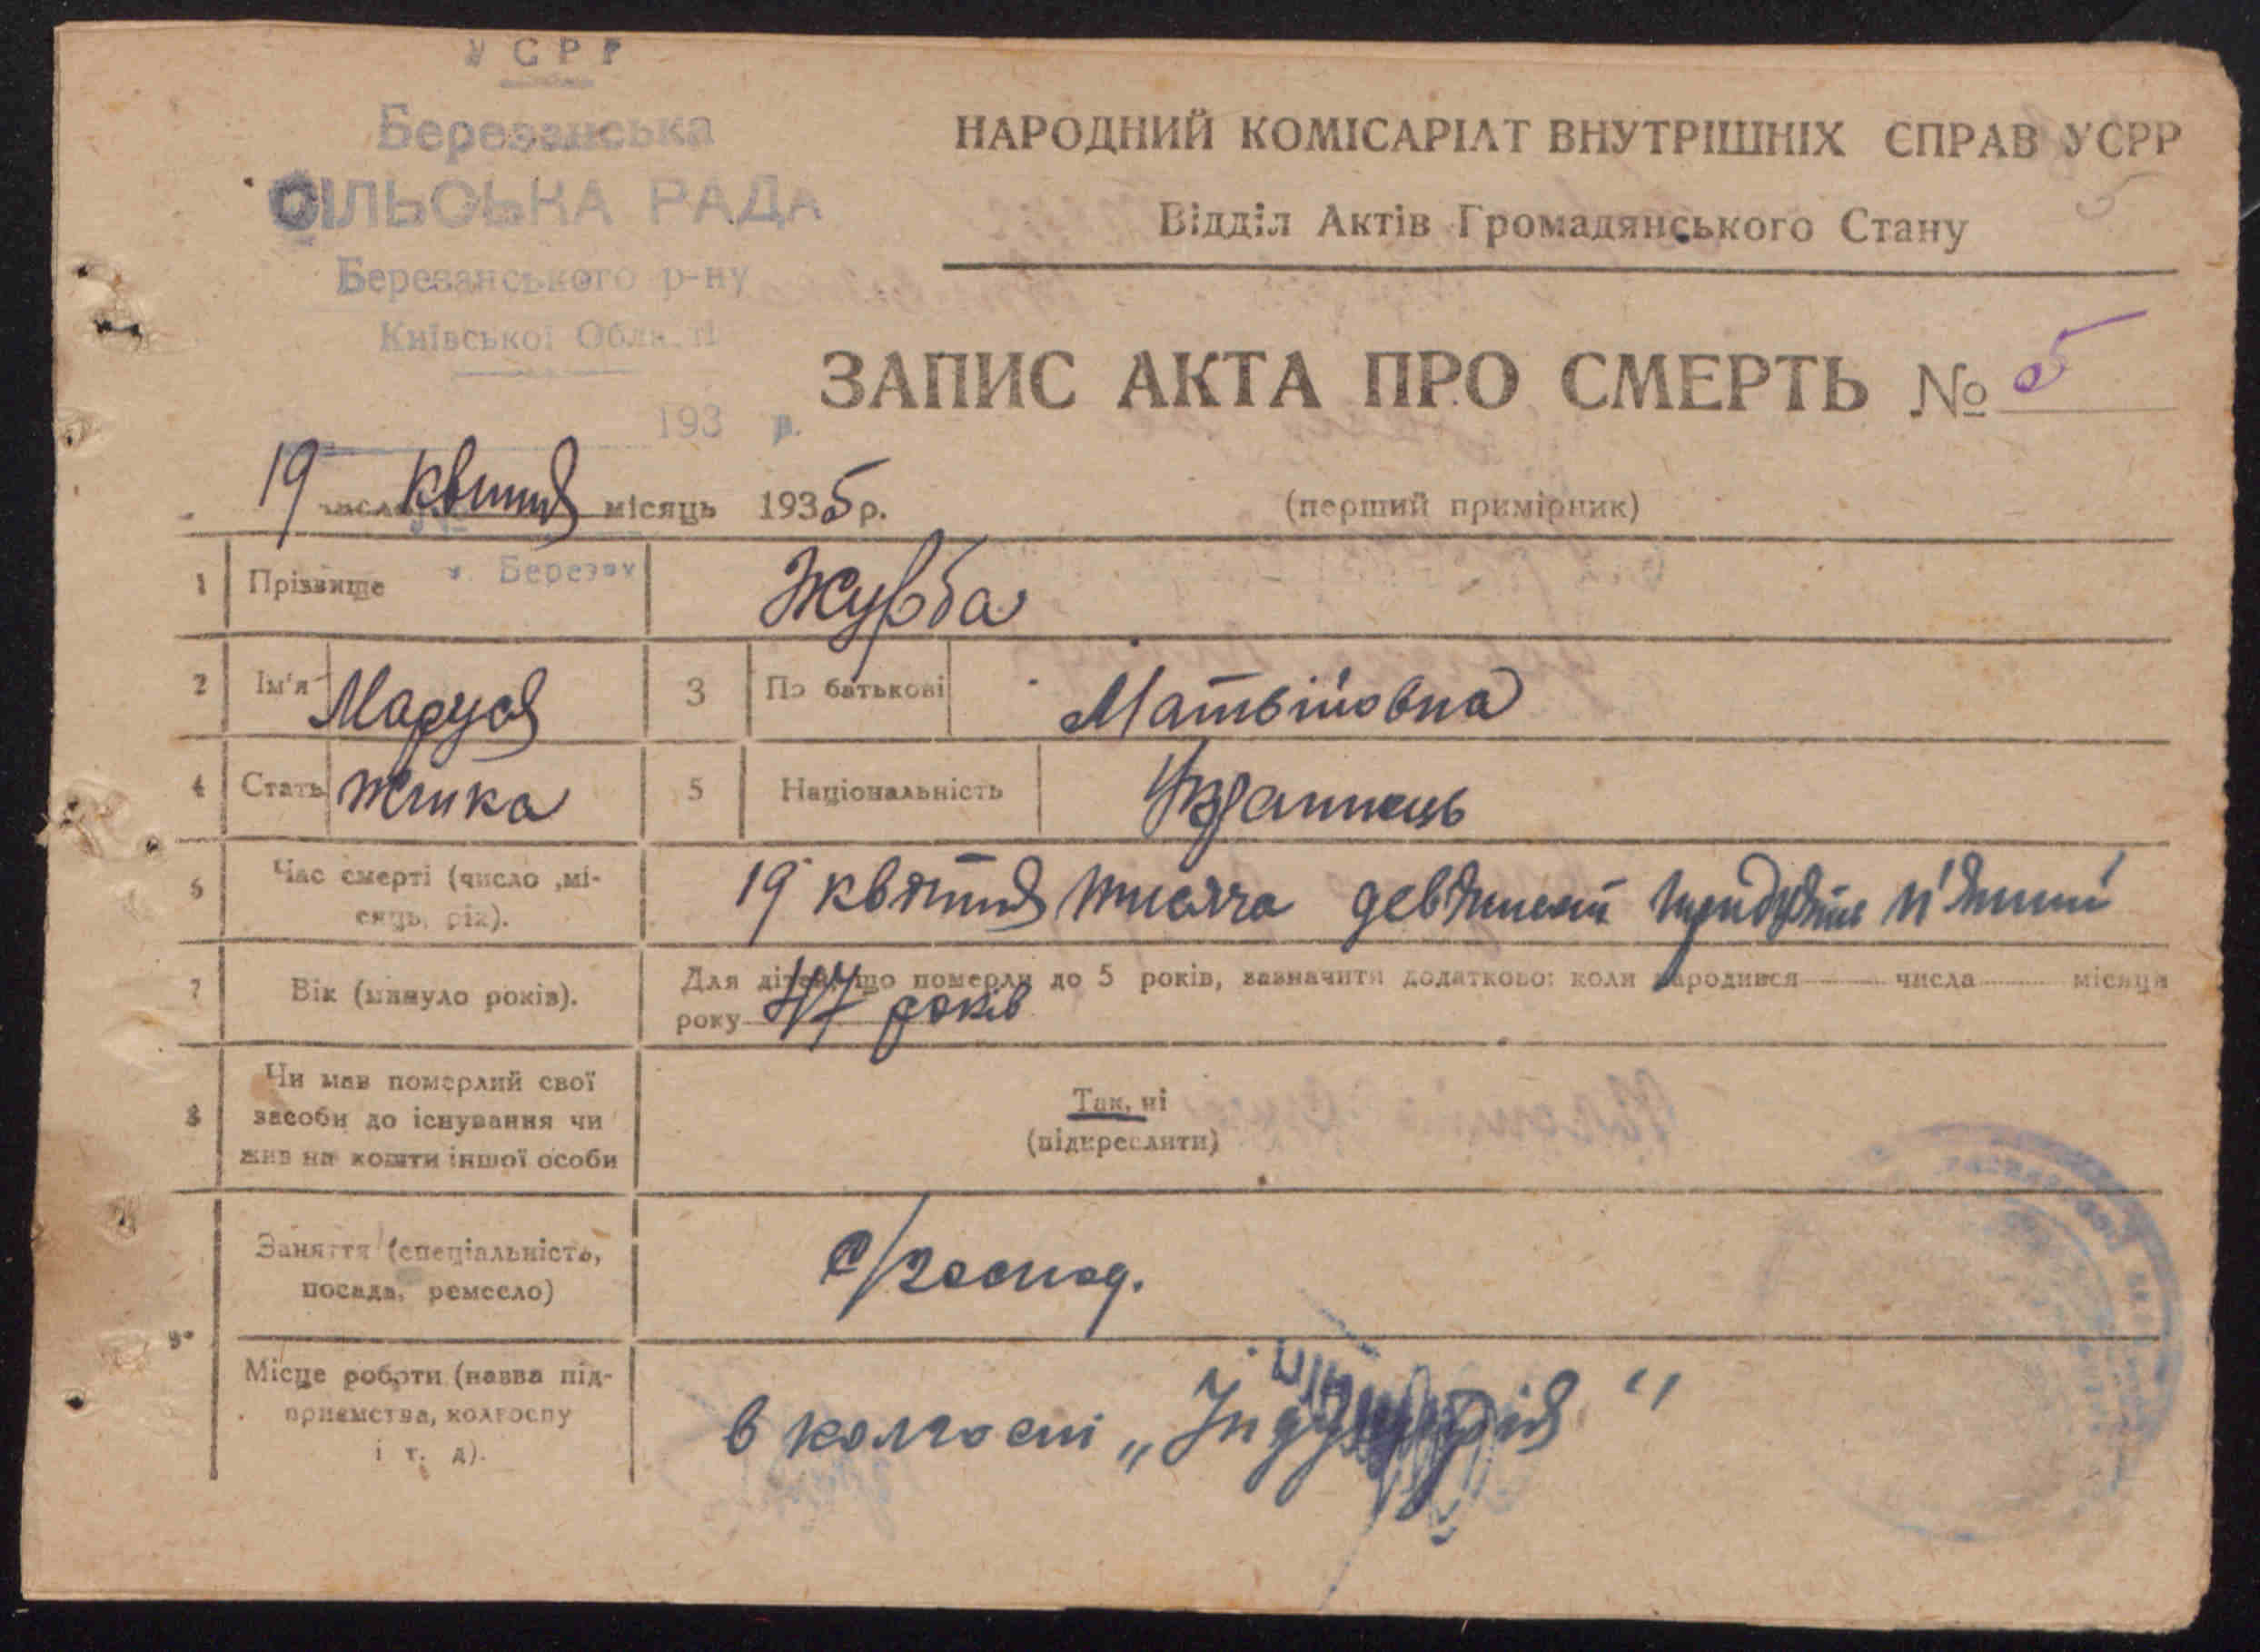 УСРР
Березанська
СІЛЬСЬКА РАДА
Березанського р-ну
Київської Области
193 р.
НАРОДНИЙ КОМІСАРІЯТ ВНУТРІШНІХ СПРАВ УСРР
Відділ Актів Громадянського Стану
ЗАПИС АКТА ПРО СМЕРТЬ № 5
19 число квітня місяць 1935 р.
(перший примірник)
1 Прізвище Журба
2 Ім'я Маруся 3 По батькові Матвійовна
4 Стать жінка 5 Національність Українець
6 Час смерті (число ,мі-
сяць, рік).
19 квітня тисяча девятсот тридцять п'ятий
7 Вік (минуло років).
Для дітей, що померли до 5 років, зазначити додатково: коли народився числа місяця
року 47 років
8 Чи мав померлий свої
засоби до існування чи
жив на кошти іншої особи
Так, ні
(підкреслити)
9 Заняття (спеціальність,
посада, ремесло)
с/господ.
Місце роботи (назва під-
приємства, колгоспу
і т. д).
в колгоспі „Індустрія"